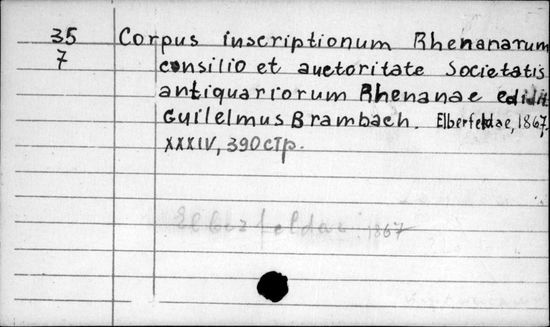 35
7
Corpus inscriptionum Rhenanarum
consilio et auctoritate Societatis
antiquariorum Rhenanae edidit
Guilelmus Brambach. Elberfeldae, 1867.
XXXIV, 390 стр.
Elberfeldae 1867